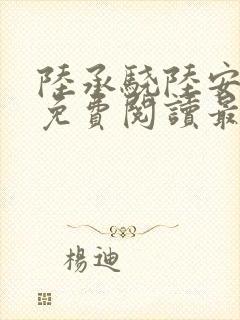 陸承驍陸安
免費閱讀最
楊迪